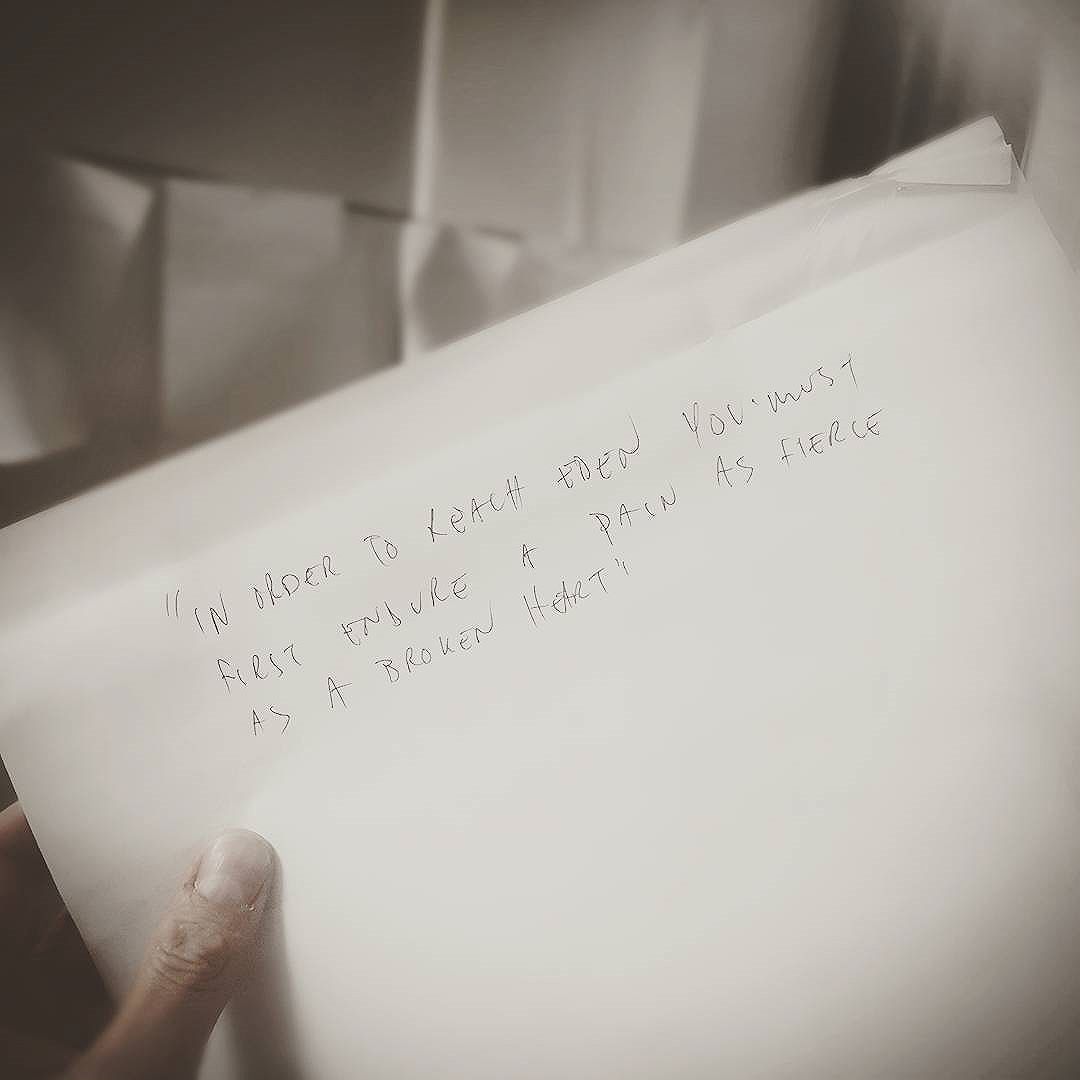 "IN ORDER TO REACH EDEN YOU MUST
FIRST ENDURE A PAIN AS FIERCE
AS A BROKEN HEART"